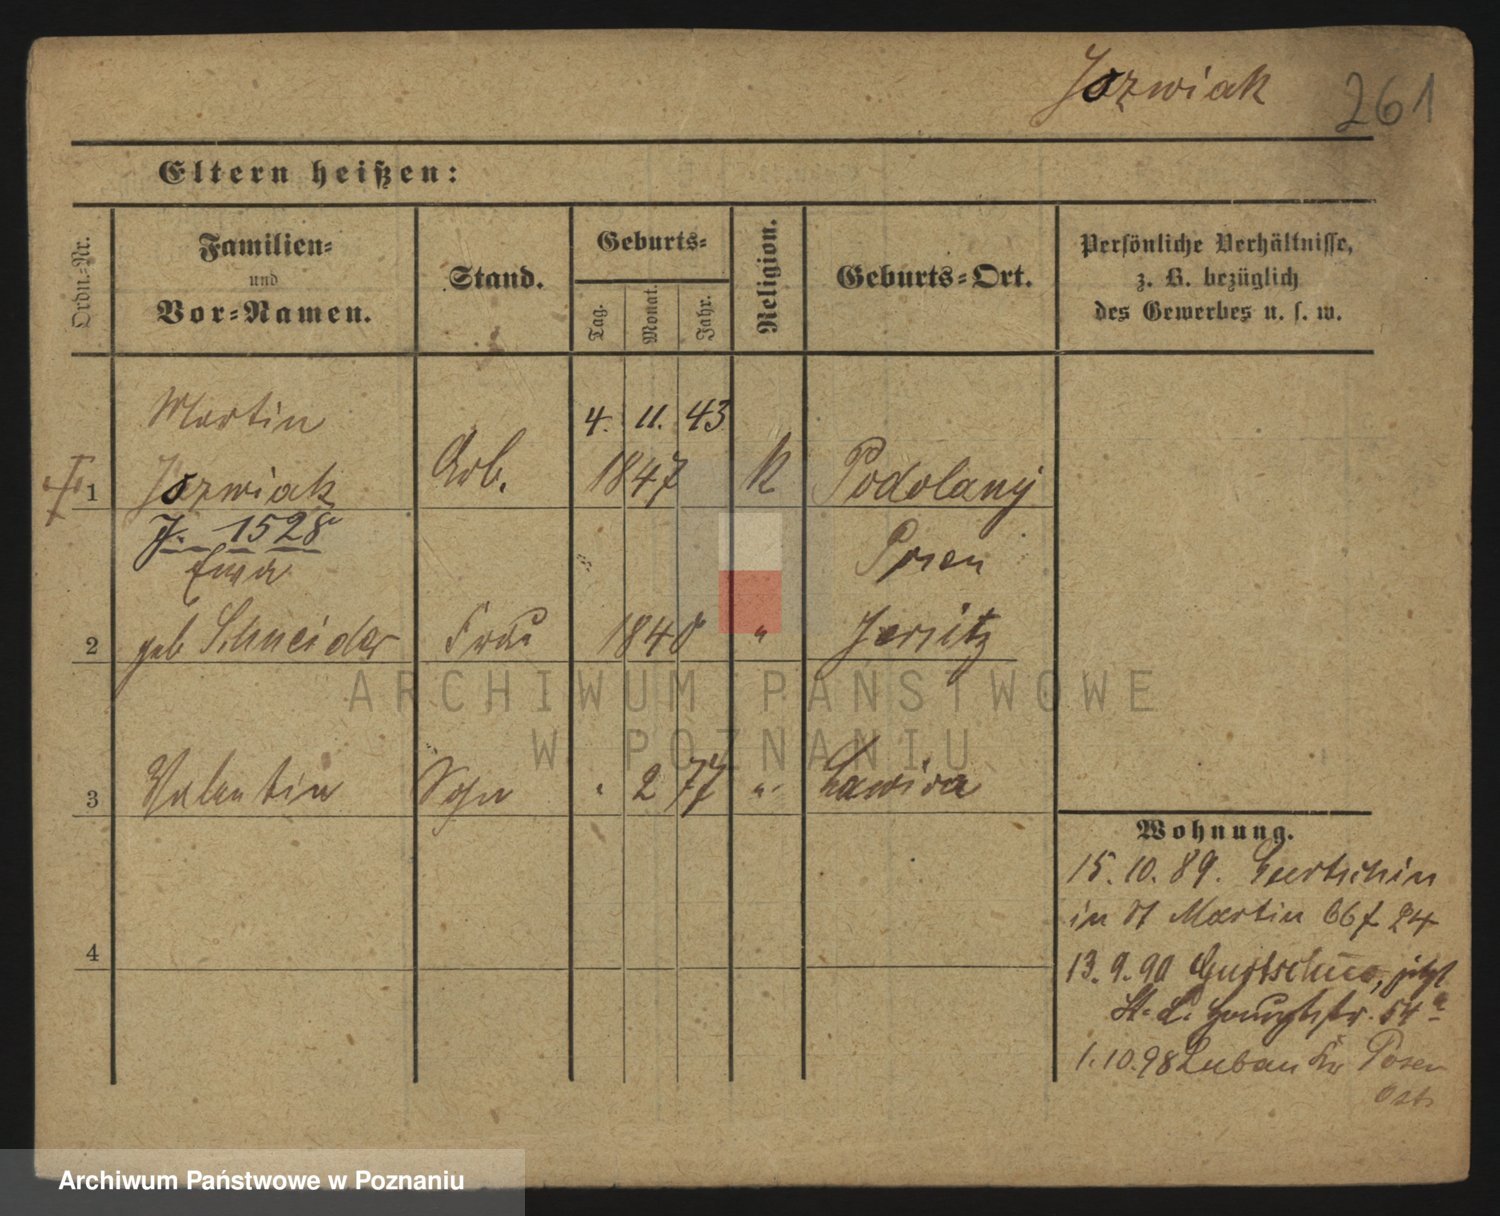 Jozwiak 261
Eltern heißen:
Ordn.-Nr.
Familien-
und
Vor-Namen.
Stand.
Geburts-
Tag.
Monat.
Jahr.
Religion.
Geburts-Ort.
Persönliche Verhältnisse,
z. B. bezüglich
des Gewerbes u. s. w.
Martin 4. 11. 43
1 Jozwiak Arb. 1847 K Podolany
J. 1528
Ewa Posen
2 geb Schneider Frau 1840 " Jersitz
3 Valentin Sohn " 2 77 " Lawica
4
Wohnung.
15. 10. 89. Gurtschin
in St Martin 66 24
13. 9. 90 Gurtschin, jetzt
St. L. Hauptstr. 54a
1. 10. 98 Luban Kr Posen
Ost.
ARCHIWUM PAŃSTWOWE
W POZNANIU
Archiwum Państwowe w Poznaniu